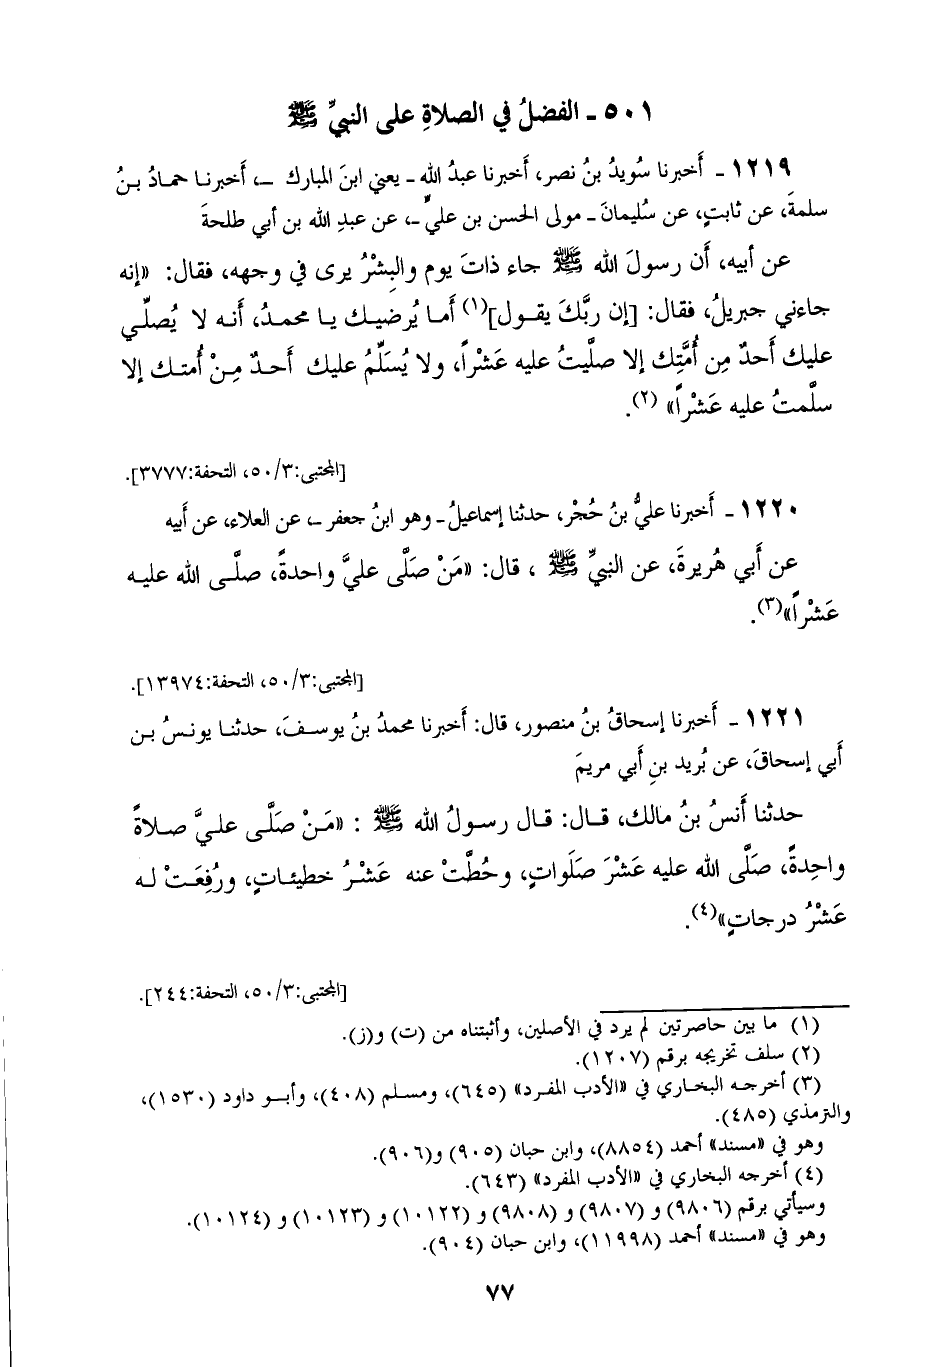 ٥٠١ ـ الفضلُ في الصلاةِ على النبيِّ ﷺ
١٢١٩ ـ أَخبرنا سُويدُ بنُ نصر، أَخبرنا عبدُ الله ـ يعني ابنَ المبارك ـ، أَخبرنا حمادُ بنُ
سلمةَ، عن ثابتٍ، عن سُليمانَ ـ مولى الحسن بن عليٍّ ـ، عن عبدِ الله بن أبي طلحةَ
عن أبيه، أَن رسولَ الله ﷺ جاء ذاتَ يوم والبِشْرُ يرى في وجهه، فقال: «إنه
جاءني جبريلُ، فقال: [إن ربَّكَ يقول](١) أَما يُرضيك يا محمدُ، أَنه لا يُصلِّي
عليك أَحدٌ مِن أُمَّتِك إلا صلَّيتُ عليه عَشْراً، ولا يُسَلِّمُ عليك أَحدٌ مِنْ أُمتك إلا
سلَّمتُ عليه عَشْراً» (٢).
[المجتبى:٥٠/٣، التحفة:٣٧٧٧].
١٢٢٠ ـ أَخبرنا عليُّ بنُ حُجْر، حدثنا إسماعيلُ ـ وهو ابنُ جعفر ـ، عن العلاء، عن أَبيه
عن أَبي هُريرةَ، عن النبيِّ ﷺ ، قال: «مَنْ صَلَّى عليَّ واحدةً، صلَّى الله عليه
عَشْراً»(٣).
[المجتبى:٥٠/٣، التحفة:١٣٩٧٤].
١٢٢١ ـ أَخبرنا إسحاقُ بنُ منصور، قال: أَخبرنا محمدُ بنُ يوسفَ، حدثنا يونسُ بن
أَبي إسحاقَ، عن بُريد بنِ أَبي مريمَ
حدثنا أَنسُ بنُ مالك، قال: قال رسولُ الله ﷺ : «مَنْ صَلَّى عليَّ صلاةً
واحِدةً، صَلَّى الله عليه عَشْرَ صَلَواتٍ، وحُطَّتْ عنه عَشْرُ خطيئاتٍ، ورُفِعَتْ له
عَشْرُ درجاتٍ»(٤).
[المجتبى:٥٠/٣، التحفة:٢٤٤].
(١) ما بين حاصرتين لم يرد في الأصلين، وأثبتناه من (ت) و(ز).
(٢) سلف تخريجه برقم (١٢٠٧).
(٣) أخرجه البخاري في «الأدب المفرد» (٦٤٥)، ومسلم (٤٠٨)، وأبو داود (١٥٣٠)،
والترمذي (٤٨٥).
وهو في «مسند» أحمد (٨٨٥٤)، وابن حبان (٩٠٥) و(٩٠٦).
(٤) أخرجه البخاري في «الأدب المفرد» (٦٤٣).
وسيأتي برقم (٩٨٠٦) و (٩٨٠٧) و (٩٨٠٨) و (١٠١٢٢) و (١٠١٢٣) و (١٠١٢٤).
وهو في «مسند» أحمد (١١٩٩٨)، وابن حبان (٩٠٤).
٧٧